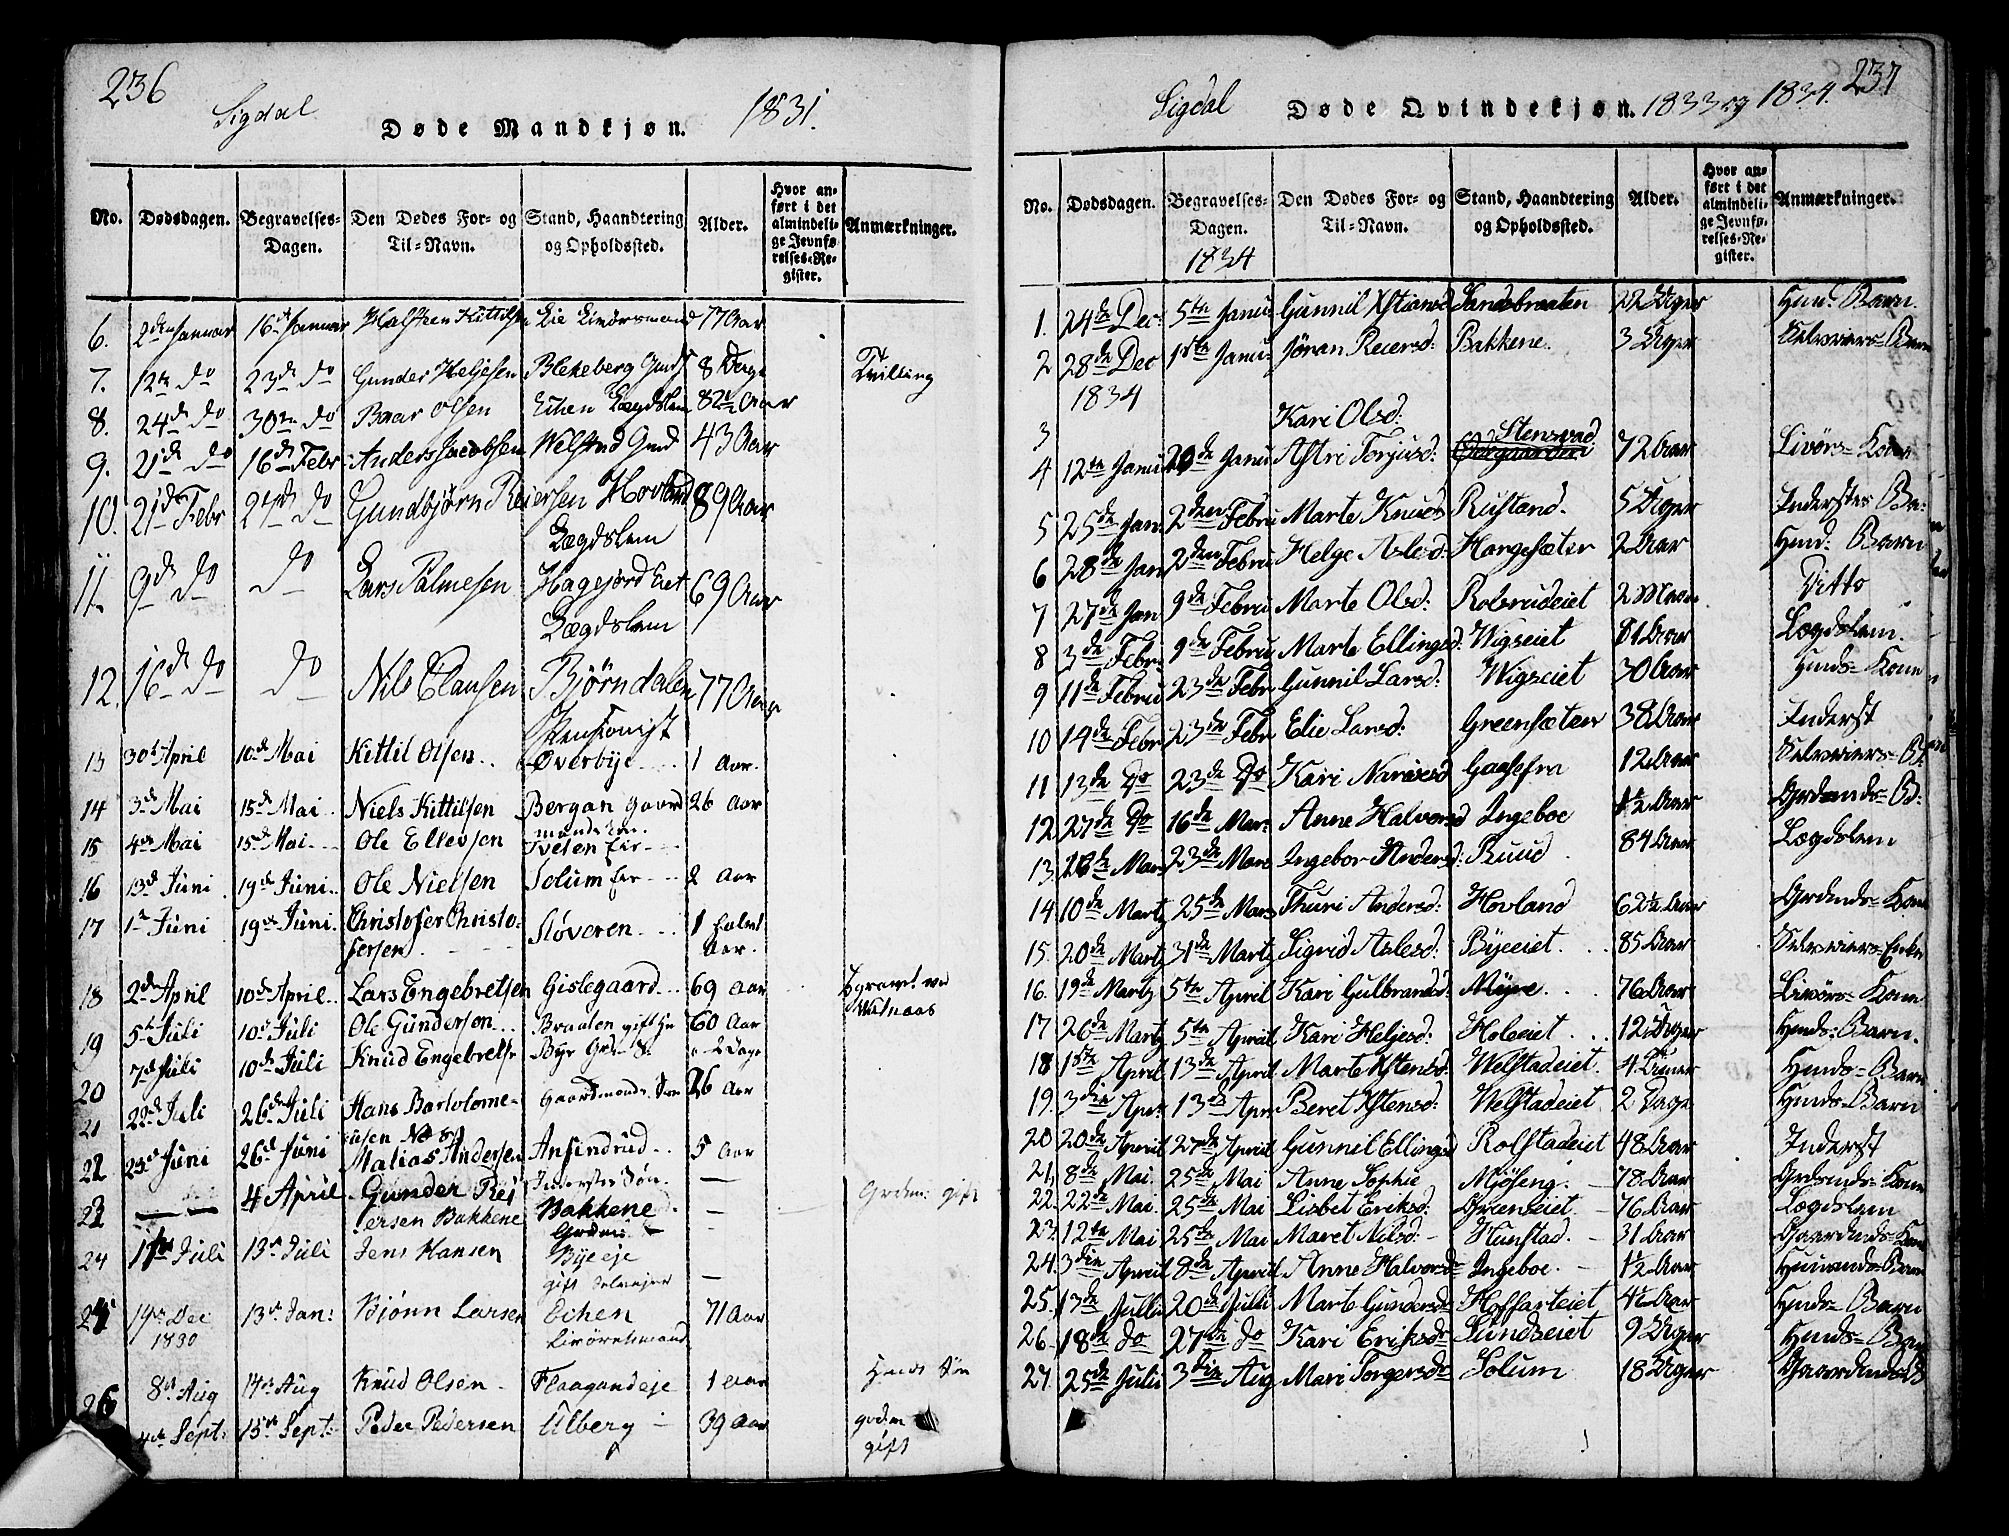 236
Sigdal
Døde Mandkjøn.
1831.
No. Dødsdagen. Begravelses-Dagen. Den Dødes For- og Til-Navn. Stand, Haandtering og Opholdssted. Alder. Hvor anført i det almindelige Jevnførelses-Register. Anmærkninger.
6. 2den Januar 16de Januar Halsteen Kittils 77 Aar
7. 12te do 23de do Gunder Heljesen Blekeberg 8 Dage Tvilling
8. 24de do 30te do Baar Olsen Eken Lægdslem 82½ Aar
9. 21de do 16de Febr Anders Jacobsen Welstad 43 Aar
10. 21de Febr 27de do Gundbjørn Reiersen Hovland 89 Aar
Lægdslem
11. 9de do do Lars Palmesen Hagejord Eiet 69 Aar
Lægdslem
12. 16de do do Nils Clausen Bjørndalen 77 Aar
Pensionist
13 30te April 10de Mai Kittil Olsen Øverbye 1 Aar.
14 3de Mai 15de Mai Niels Kittilsen Bergan Gaard 26 Aar
mands Søn.
15 4de Mai 15de Mai Ole Ellevsen Tveten Eie
16 13de Juni 19de Juni Ole Nielsen Solum Eie 2 Aar
17 1te Juni 19de Juni Christofer Christo- Støveren 1 halvt
fersen Aar.
18 2de April 10de April Lars Engebretsen Gislegaard 69 Aar
19 5te Juli 10de Juli Ole Gundersen Braaten gift 60 Aar
7de Juli 10de Juli Knud Engebrets Bye 2 Dage
20
21 22de Juli 26de Juli Hans Bartolome- Gaardmands Søn 26 Aar
22 23de Juni 26de Juni Matias Andersen Ansindrud 5 Aar
Inderstes Søn.
23 4 April Gunder Rei Bakkene Grdm: gift
ersen Bakkene
24 17de Juli 13de Juli Jens Hansen Byeeje
gift
24 19de Dec 13de Jan: Bjønn Larsen Echen 71 Aar
1830
26 8de Aug 14de Aug Knud Olsen Flaagandeje 1 Aar Hmds Søn
4de Sept: 15de Sept: Peder Pedersen Ulberg 39 Aar grdm
gift
237
Sigdal
Døde Qvindekjøn. 1833 og 1834.
No. Dødsdagen. Begravelses-Dagen. Den Dødes For- og Til-Navn. Stand, Haandtering og Opholdssted. Alder. Hvor anført i det almindelige Jevnførelses-Register. Anmærkninger.
1834
1. 24de Dec: 5te Janu: Gunnil Sandsbraaten 22 Uger Hmd: Barn
2 28de Dec Janu: Jøran Reiersd: Bakkene 3 Uger Selveiers-Barn
1834
3 Kari Olsd:
Stensrud
4 12te Janu Janu Astri Torjusd: 72 Aar Livørs-Kone
5 25de Jan: 2den Febru Marte Knuds Rustand. 5 Uger Inderstes
6 28de Jan 2den Febru Helge Aslesd: Horgesæter 2 Aar Hmd: Barn
7 27de Jan 9de Febru Marte Olsd: Rolsrudeiet 2 Maan Ditto
8 3de Febr: 9de Febru Marte Ellingsd: Wigseiet 81 Aar Lægdslem.
9 11de Febru 23de Febr Gunnil Larsd: Wigseiet 30 Aar Hmds-Kone
10 14de Febr 23de Febr Elie Larsd: Greensæter 38 Aar Inderst
11 13de Do 23de Do Kari Narvesd Gaasefra 12 Aar Selveiers-B
12 27de Do 16de Mar: Anne Halvorsd Ingeboe 1½ Aar Grdmds-B:
13 Mar: 23de Mar: Ingebor Andersd: Ruud 84 Aar Lægdslem
14 10de Marty 25de Mars Thuri Andersd: Hovland 62½ Aar Grdmds-Kone
15. 20de Marty 31de Marty Sigrid Aslesd: Byeeiet. 85 Aar Selveiers-Enke
16. 19de Marty 5te April Kari Gulbrandsd: Myre 76 Aar Livørs-Kone
17 26de Marty 5te April Kari Heljesd: Holeiet 12 Uger Hmds-Barn.
18 1ste April 13de April Marte Welstadeiet. 4 Timer Hmds-Barn
19. 3die Apr: 13de Apr: Beret Welstadeiet 2 Dage Hmds-Barn
20 20de April 27de April Gunnil Ellingsd Rolfstadeiet 48 Aar Inderst
21. 8de Mai. 25de Mai Anne Sophie Mjøseng. 78 Aar Grdmds-Kone
22. 22de Mai 25de Mai Lisbet Eriksd: Greenseiet 76 Aar Lægdslem
23. 12te Mai 25de Mai Maret Nilsd: Hunstad. 31 Aar Gaardmds-Kone
24. 3die April 8de April Anne Halvorsd: Ingeboe. 1½ Aar
25. 13de Julii 20de Julii Marte Gundersd: Hoffarteiet 4½ Aar Hmds-Barn
26 18de do 27de do Kari Eriksd: Lundseiet 9 Uger Hmds-Barn
27. 25de Julii 3die Aug Mari Torgersd: Solum 18 Uger Gaardmds B